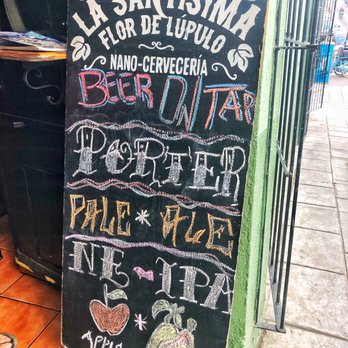 LA SANTÍSIMA
FLOR DE LÚPULO
NANO-CERVECERÍA
BEER ON TAP
PORTER
PALE * ALE
NE - IPA
APPLE